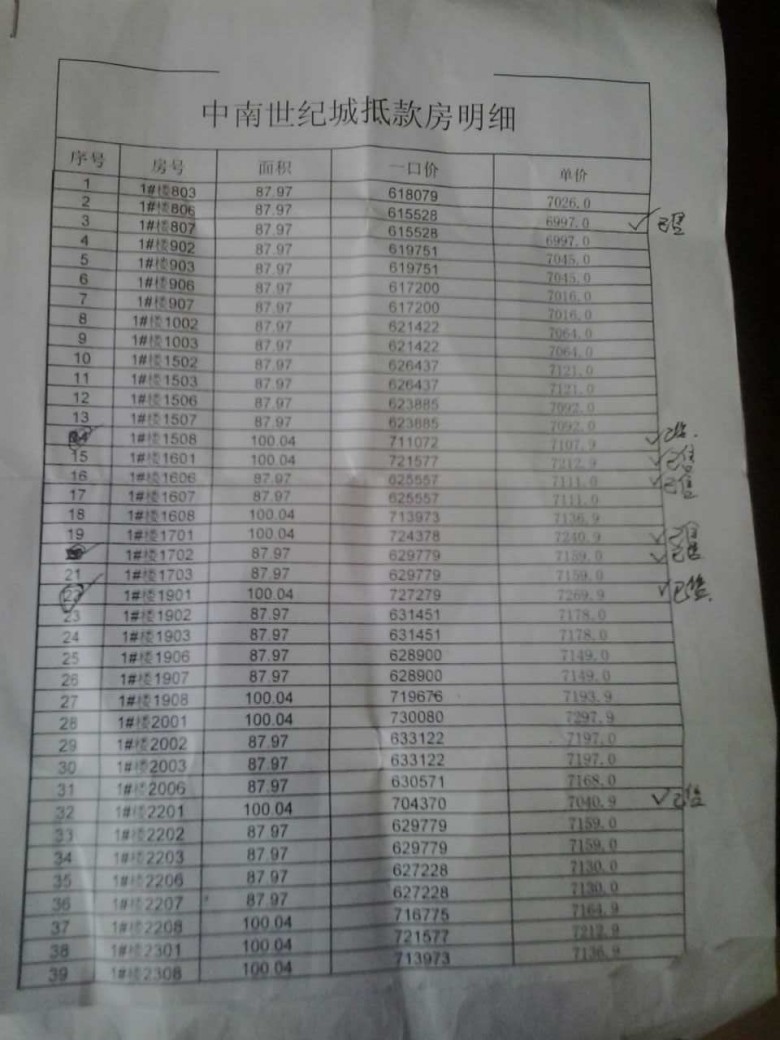 中南世纪城抵款房明细
序号 房号 面积 一口价 单价
1 1#楼803 87.97 618079 7026.0
2 1#楼806 87.97 615528 6997.0 已
3 1#楼807 87.97 615528 6997.0
4 1#楼902 87.97 619751 7045.0
5 1#楼903 87.97 619751 7045.0
6 1#楼906 87.97 617200 7016.0
7 1#楼907 87.97 617200 7016.0
8 1#楼1002 87.97 621422 7064.0
9 1#楼1003 87.97 621422 7064.0
10 1#楼1502 87.97 626437 7121.0
11 1#楼1503 87.97 626437 7121.0
12 1#楼1506 87.97 623885 7092.0
13 1#楼1507 87.97 623885 7092.0
1#楼1508 100.04 711072 7107.9 已售
15 1#楼1601 100.04 721577 7212.9 已售
16 1#楼1606 87.97 625557 7111.0 已售
17 1#楼1607 87.97 625557 7111.0
18 1#楼1608 100.04 713973 7136.9
19 1#楼1701 100.04 724378 7240.9 已售
1#楼1702 87.97 629779 7159.0 已售
21 1#楼1703 87.97 629779 7159.0
22 1#楼1901 100.04 727279 7269.9 已售
23 1#楼1902 87.97 631451 7178.0
24 1#楼1903 87.97 631451 7178.0
25 1#楼1906 87.97 628900 7149.0
26 1#楼1907 87.97 628900 7149.0
27 1#楼1908 100.04 719676 7193.9
28 1#楼2001 100.04 730080 7297.9
29 1#楼2002 87.97 633122 7197.0
30 1#楼2003 87.97 633122 7197.0
31 1#楼2006 87.97 630571 7168.0
32 1#楼2201 100.04 704370 7040.9 已售
33 1#楼2202 87.97 629779 7159.0
34 1#楼2203 87.97 629779 7159.0
35 1#楼2206 87.97 627228 7130.0
36 1#楼2207 87.97 627228 7130.0
37 1#楼2208 100.04 716775 7164.9
38 1#楼2301 100.04 721577 7212.9
39 1#楼2308 100.04 713973 7136.9